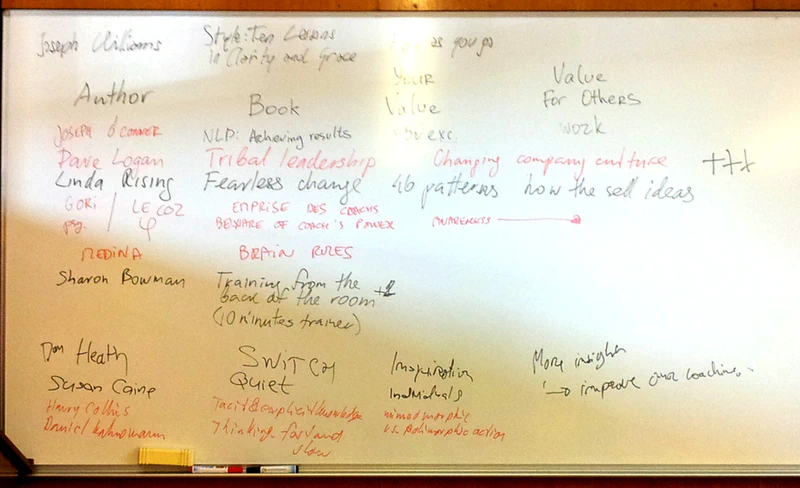 Joseph Williams Style: Ten Lessons
in Clarity and Grace as you go
Author Book Your Value Value For Others
JOSEPH O'CONNER NLP: Achieving results exc. work
Dave Logan Tribal leadership Changing company culture +++
Linda Rising Fearless change 46 patterns how the sell ideas
GORI / LE COZ EMPRISE DES COACHS
psy. φ BEWARE OF COACH'S POWER AWARENESS
MEDINA BRAIN RULES
Sharon Bowman Training from the
back of the room +2
(10 minutes trainer)
Dan Heath SWITCH Inspiration More insights
Susan Caine QUIET individuals → improve our coaching
Harry Collins Tacit & explicit knowledge mimeomorphic
Daniel Kahnemann Thinking fast and vs. polimorphic action
slow